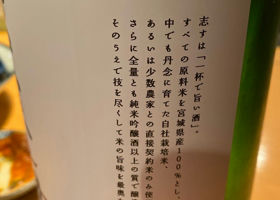 志すは「一杯で旨い酒」。
すべての原料米を宮城県産100%とし、
中でも丹念に育てた自社栽培米、
あるいは少数農家との直接契約米のみ使
さらに全量とも純米吟醸酒以上の質で醸
そのうえで技を尽くして米の旨味を最奥